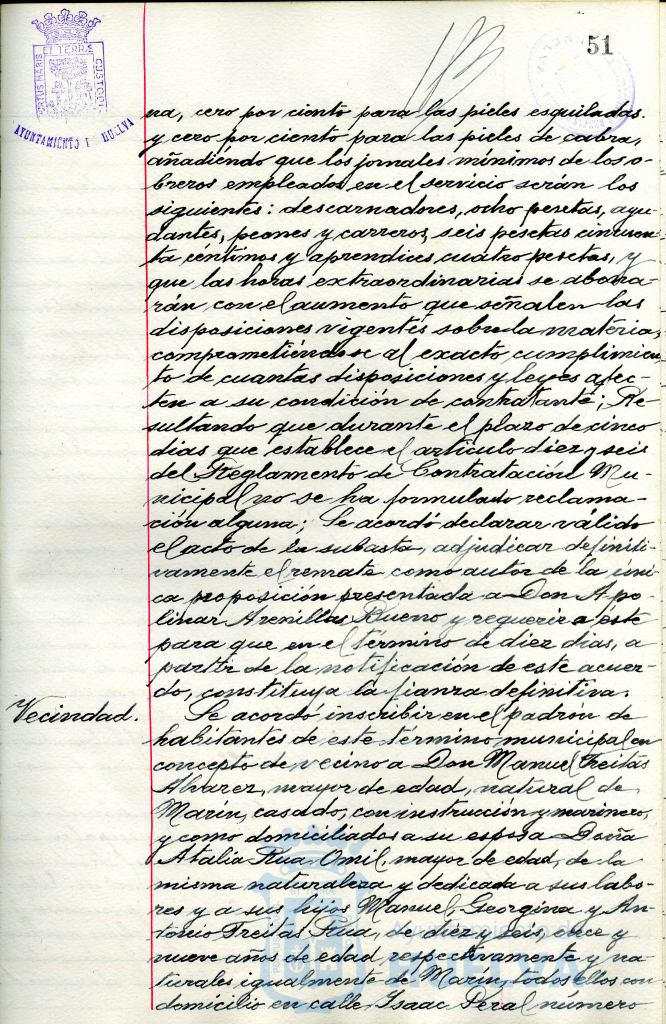 51
PORTUS MARIS ET TERRÆ CUSTODIA
AYUNTAMIENTO DE HUELVA
na, cero por ciento para las pieles esquiladas.
y cero por ciento para las pieles de cabra,
añadiendo que los jornales mínimos de los o-
breros empleados en el servicio serán los
siguientes: descarnadores, ocho pesetas, ayu-
dantes, peones y carreros, seis pesetas cincuen-
ta céntimos y aprendices cuatro pesetas, y
que las horas extraordinarias se abona-
rán con el aumento que señalen las
disposiciones vigentes sobre la materia,
comprometiéndose al exacto cumplimien-
to de cuantas disposiciones y leyes afec-
ten a su condición de contratante; Re-
sultando que durante el plazo de cinco
dias que establece el artículo diez y seis
del Reglamento de Contratación Mu-
nicipal no se ha formulado reclama-
ción alguna; Se acordó declarar válido
el acto de la subasta, adjudicar definiti-
vamente el remate como autor de la úni-
ca proposición presentada a Don Apo-
linar Arenillas Bueno y requerir a éste
para que en el término de diez dias, a
partir de la notificación de este acuer-
do, constituya la fianza definitiva.
Vecindad.
Se acordó inscribir en el padrón de
habitantes de este término municipal en
concepto de vecino a Don Manuel Freitas
Alvarez, mayor de edad, natural de
Marín, casado, con instrucción y marinero,
y como domiciliados a su esposa Doña
Atalia Rua Omil, mayor de edad, de la
misma naturaleza y dedicada a sus labo-
res y a sus hijos Manuel, Georgina y An-
tonio Freitas Rua, de diez y seis, once y
nueve años de edad respectivamente y na-
turales igualmente de Marín, todos ellos con
domicilio en calle Isaac Peral número